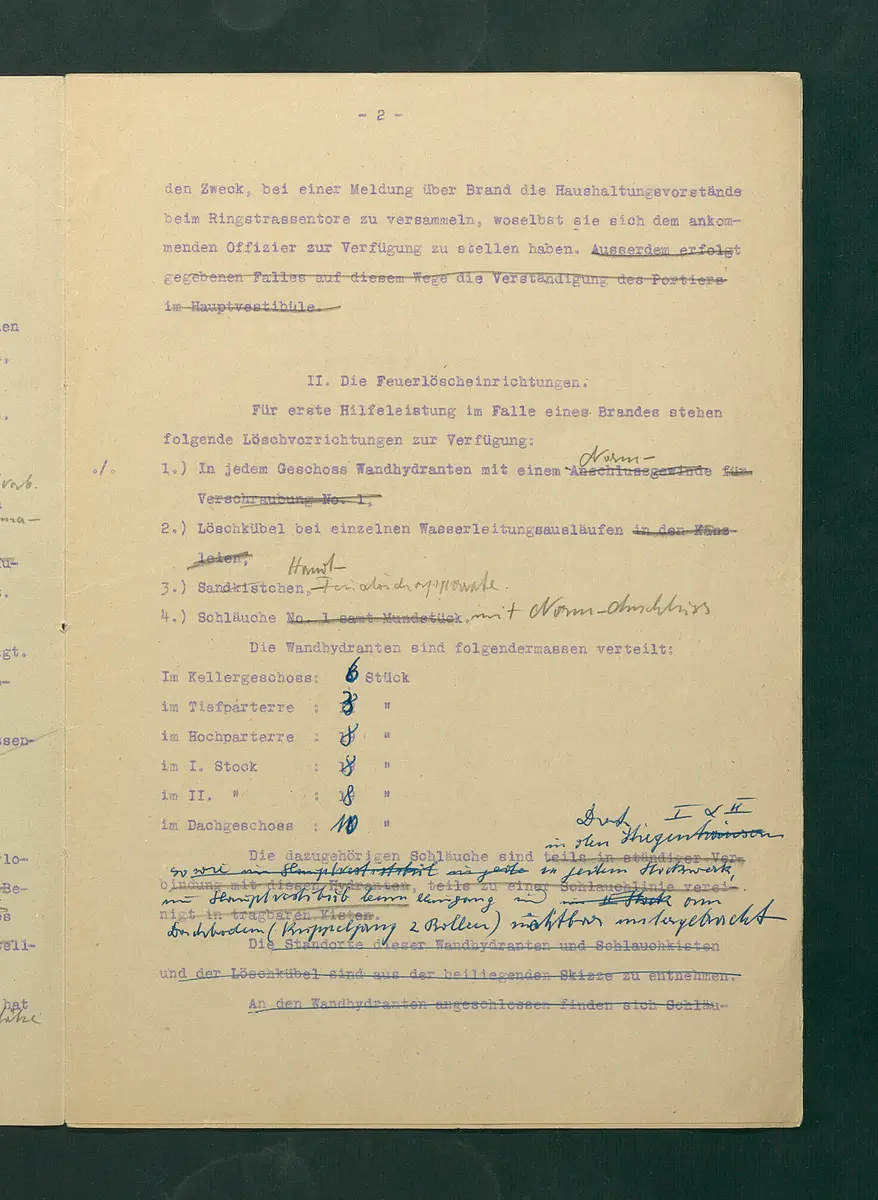 - 2 -
den Zweck, bei einer Meldung über Brand die Haushaltungsvorstände
beim Ringstrassentore zu versammeln, woselbst sie sich dem ankom-
menden Offizier zur Verfügung zu stellen haben. Ausserdem erfolgt
gegebenen Falles auf diesem Wege die Verständigung des Portiers
im Hauptvestibüle.
II. Die Feuerlöscheinrichtungen.
Für erste Hilfeleistung im Falle eines Brandes stehen
folgende Löschvorrichtungen zur Verfügung:
Norm-
./. 1.) In jedem Geschoss Wandhydranten mit einem Anschlussgewinde für
Verschraubung No. 1,
2.) Löschkübel bei einzelnen Wasserleitungsausläufen in den Kanz-
leien,
Hand-
3.) Sandkistchen,
4.) Schläuche No. 1 samt Mundstück. mit Norm-Anschluss
Die Wandhydranten sind folgendermassen verteilt:
Im Kellergeschoss: 6 Stück
im Tiefparterre : 8 "
im Hochparterre : 8 "
im I. Stock : 8 "
im II. " : 8 "
im Dachgeschoss : 10 "
I & II
in den Stiegenhäusern
Die dazugehörigen Schläuche sind teils in ständiger Ver-
sowie im Hauptvestibül in jedem Stockwerk,
bindung mit diesen Hydranten, teils zu einer Schlauchlinie verei-
im Hauptvestibül beim Eingang im II Stock am
nigt in tragbaren Kisten.
Dachboden ( 2 Rollen) sichtbar untergebracht
Die Standorte dieser Wandhydranten und Schlauchkisten
und der Löschkübel sind aus der beiliegenden Skizze zu entnehmen.
An den Wandhydranten angeschlossen finden sich Schläu-